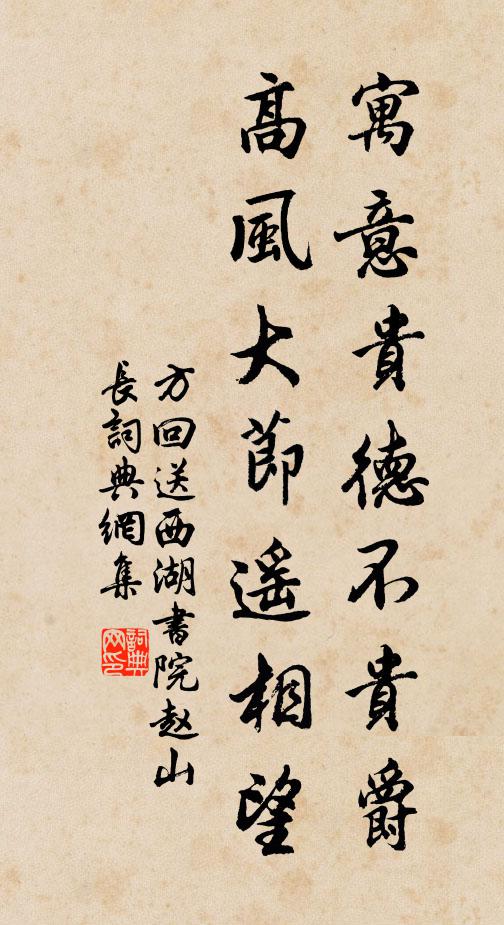 寓意貴德不貴爵
高風大節遥相望
方回送西湖書院赵山
長詞典網集
詞典网印